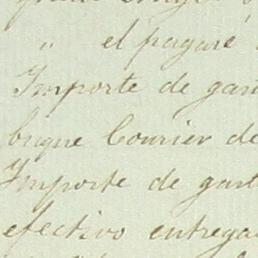 „ el pagaré
Importe de gast
buque Courier de
Importe de gast
efectivo entrega